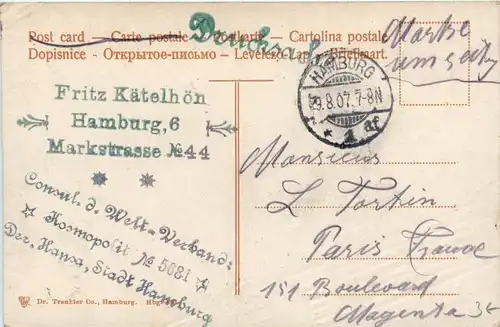 Post card — Carte postale — Postkarte — Cartolina postale
Dopisnice - Открытое-письмо - Levelező-Lap - Brefkort.
Drucksache
Marke
umseitig
HAMBURG
29.8.07.7-8N
* 1 af
Fritz Kätelhön
Hamburg,6
Markstrasse №44
Consul. d. Welt-Verband:
Kosmopolit № 5081
Der. Hansa, Stadt Hamburg
Monsieur
L Tortin
Paris France
151 Boulevard
Magenta 38
Dr. Trenkler Co., Hamburg.